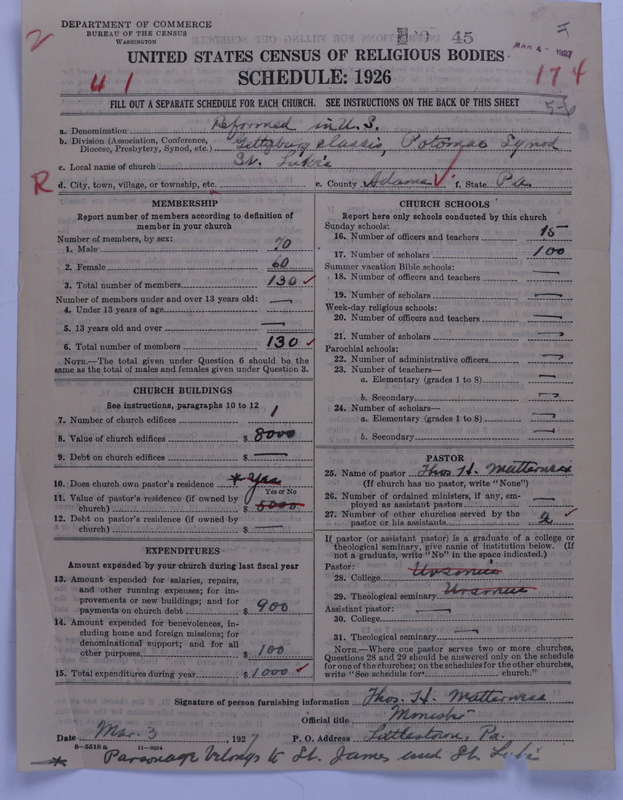 DEPARTMENT OF COMMERCE
BUREAU OF THE CENSUS
WASHINGTON
45
MAR 4 - 1927
2
UNITED STATES CENSUS OF RELIGIOUS BODIES
SCHEDULE: 1926
41
174
FILL OUT A SEPARATE SCHEDULE FOR EACH CHURCH. SEE INSTRUCTIONS ON THE BACK OF THIS SHEET
a. Denomination Reformed in U.S.
b. Division (Association, Conference, Diocese, Presbytery, Synod, etc.) Gettysburg Classis, Potomac Synod
c. Local name of church St. Luke's
R
d. City, town, village, or township, etc. e. County Adams f. State Pa.
MEMBERSHIP
Report number of members according to definition of
member in your church
Number of members, by sex:
1. Male 70
2. Female 60
3. Total number of members 130
Number of members under and over 13 years old:
4. Under 13 years of age —
5. 13 years old and over —
6. Total number of members 130
NOTE.—The total given under Question 6 should be the
same as the total of males and females given under Question 3.
CHURCH BUILDINGS
See instructions, paragraphs 10 to 12
7. Number of church edifices 1
8. Value of church edifices $ 8000
9. Debt on church edifices $ —
10. Does church own pastor's residence * Yes
Yes or No
11. Value of pastor's residence (if owned by
church) $ 5000
12. Debt on pastor's residence (if owned by
church) $ —
EXPENDITURES
Amount expended by your church during last fiscal year
13. Amount expended for salaries, repairs,
and other running expenses; for im-
provements or new buildings; and for
payments on church debt $ 900
14. Amount expended for benevolences, in-
cluding home and foreign missions; for
denominational support; and for all
other purposes $ 100
15. Total expenditures during year $ 1000
CHURCH SCHOOLS
Report here only schools conducted by this church
Sunday schools:
16. Number of officers and teachers 15
17. Number of scholars 100
Summer vacation Bible schools:
18. Number of officers and teachers —
19. Number of scholars —
Week-day religious schools:
20. Number of officers and teachers —
21. Number of scholars —
Parochial schools:
22. Number of administrative officers —
23. Number of teachers—
a. Elementary (grades 1 to 8) —
b. Secondary —
24. Number of scholars—
a. Elementary (grades 1 to 8) —
b. Secondary —
PASTOR
25. Name of pastor Thos. H. Matterness
(If church has no pastor, write "None")
26. Number of ordained ministers, if any, em-
ployed as assistant pastors —
27. Number of other churches served by the
pastor or his assistants 2
If pastor (or assistant pastor) is a graduate of a college or
theological seminary, give name of institution below. (If
not a graduate, write "No" in the space indicated.)
Pastor:
28. College Ursinus
29. Theological seminary Ursinus
Assistant pastor:
30. College —
31. Theological seminary —
NOTE.—Where one pastor serves two or more churches,
Questions 28 and 29 should be answered only on the schedule
for one of the churches; on the schedules for the other churches,
write "See schedule for church."
Signature of person furnishing information Thos. H. Matterness
Official title Minister
Date Mar. 3, 1927 P. O. Address Littlestown, Pa.
8—5518 a 11—9034
* Parsonage belongs to St. James and St. Luke